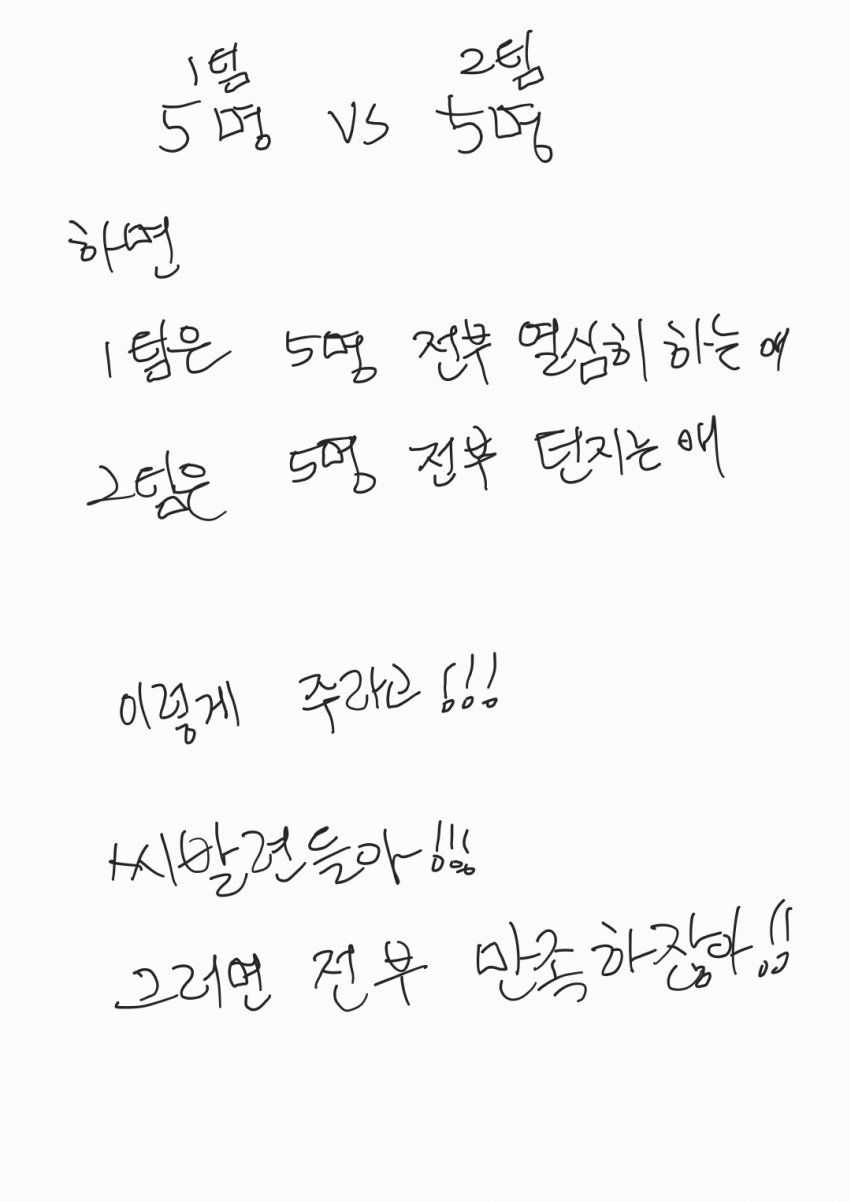 1팀 2팀
5명 vs 5명
하면
1팀은 5명 전부 열심히 하는 애
2팀은 5명 전부 던지는 애
이렇게 주라고!!!
씨발련들아!!!
그러면 전부 만족하잖아!!